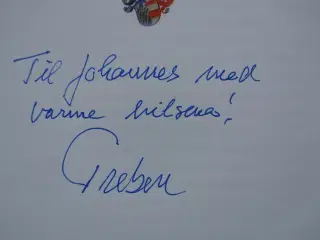 Til Johannes med
varme hilsener!
Preben